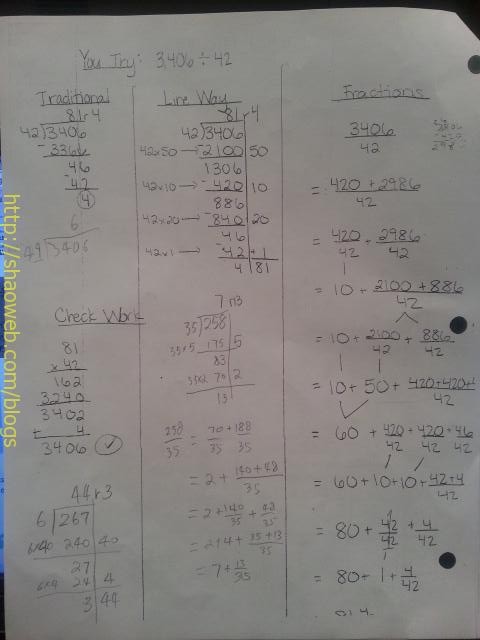 You Try: 3,406 ÷ 42
Traditional
81r4
42)3406
-3366
46
-42
4
6
49)3406
Check Work
81
x 42
162
3240
3402
+ 4
3406 ✓
44r3
6)267
6x40 240 40
27
6x4 24 4
3 44
Line Way
81r4
42)3406
42x50 → -2100 50
1306
42x10 → -420 10
886
42x20 → -840 20
46
42x1 → -42 +1
4 81
7 r13
35)258
35x5 175 5
83
35x2 70 2
13
258/35 = 70+188/35
= 2 + 140+48/35
= 2 + 140/35 + 48/35
= 2+4 + 35+13/35
= 7 + 13/35
Fractions
3406/42
= 420 + 2986/42
= 420/42 + 2986/42
= 10 + 2100 + 886/42
= 10 + 2100/42 + 886/42
= 10 + 50 + 420+420+/42
= 60 + 420/42 + 420/42 + 46/42
= 60+10+10+ 42+4/42
= 80 + 42/42 + 4/42
= 80 + 1 + 4/42
http://shaoweb.com/blogs